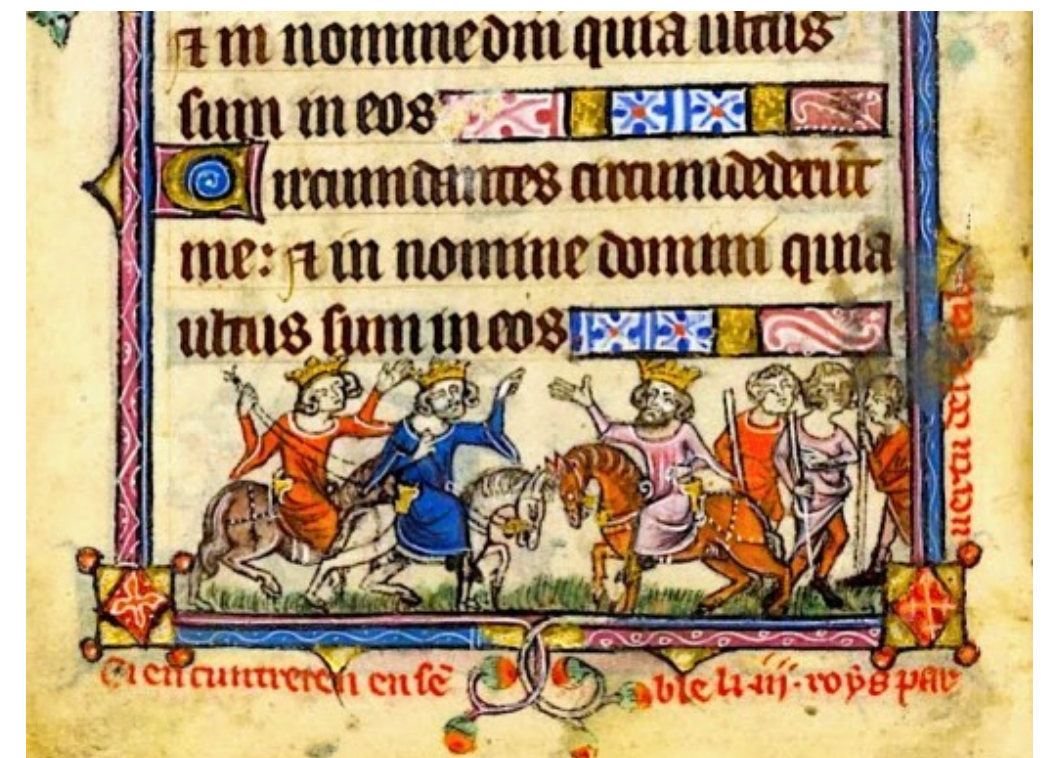 ⁊ in nomine dni quia ultus
sum in eos
Circumdantes circumdederūt
me: ⁊ in nomine domini quia
ultus sum in eos
Ci encuntreren ensē ble li·iii·roys par
uertu del